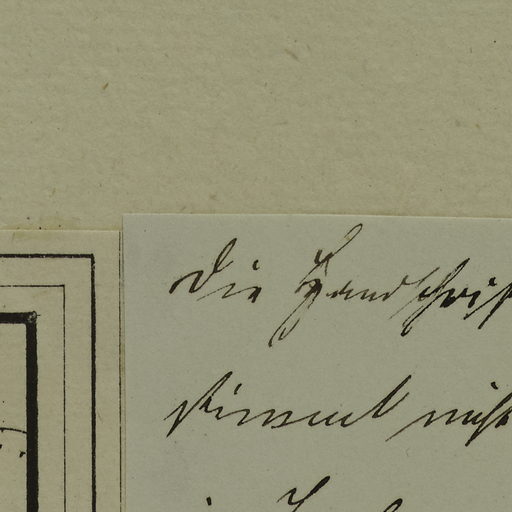 Die Handschrif
stimmt nicht